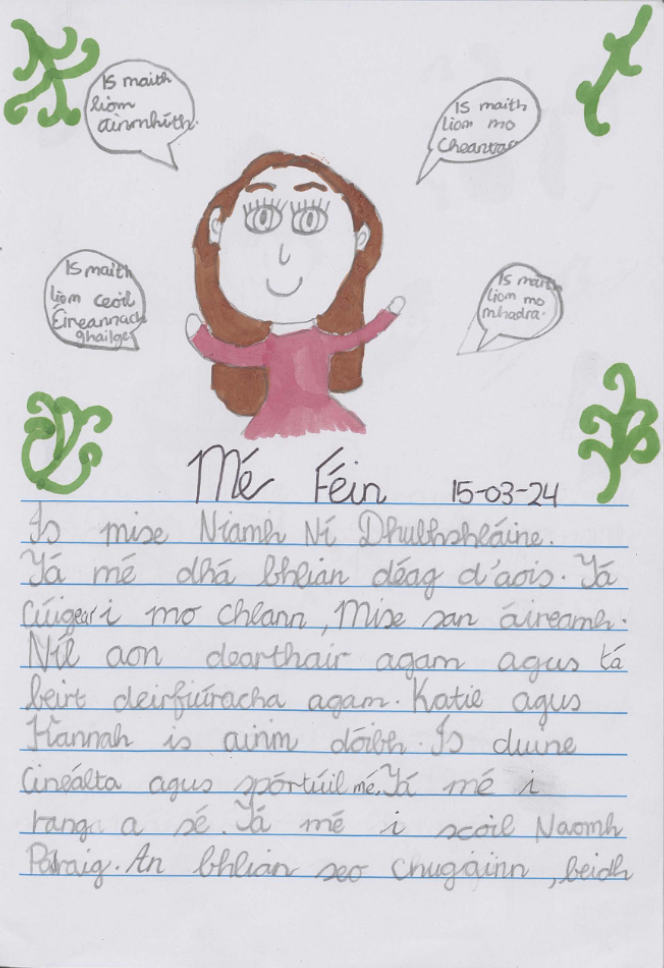 Is maith
liom
ainmhíth.
Is maith
liom mo
Cheantar
Is maith
liom ceoil
Éireannach
ghailge
Is maith
liom mo
mhadra.
Mé Féin 15-03-24
Is mise Niamh Ní Dhubhshláine.
Tá mé dhá bhlian déag d'aois. Tá
Cúigear i mo chlann, Mise san áireamh.
Níl aon dearthair agam agus tá
beirt deirfiúracha agam. Katie agus
Hannah is ainm dóibh. Is duine
Cineálta agus spórtúil mé. Tá mé i
rang a sé. Tá mé i scoil Naomh
Pádraig. An bhlian seo chugainn, beidh